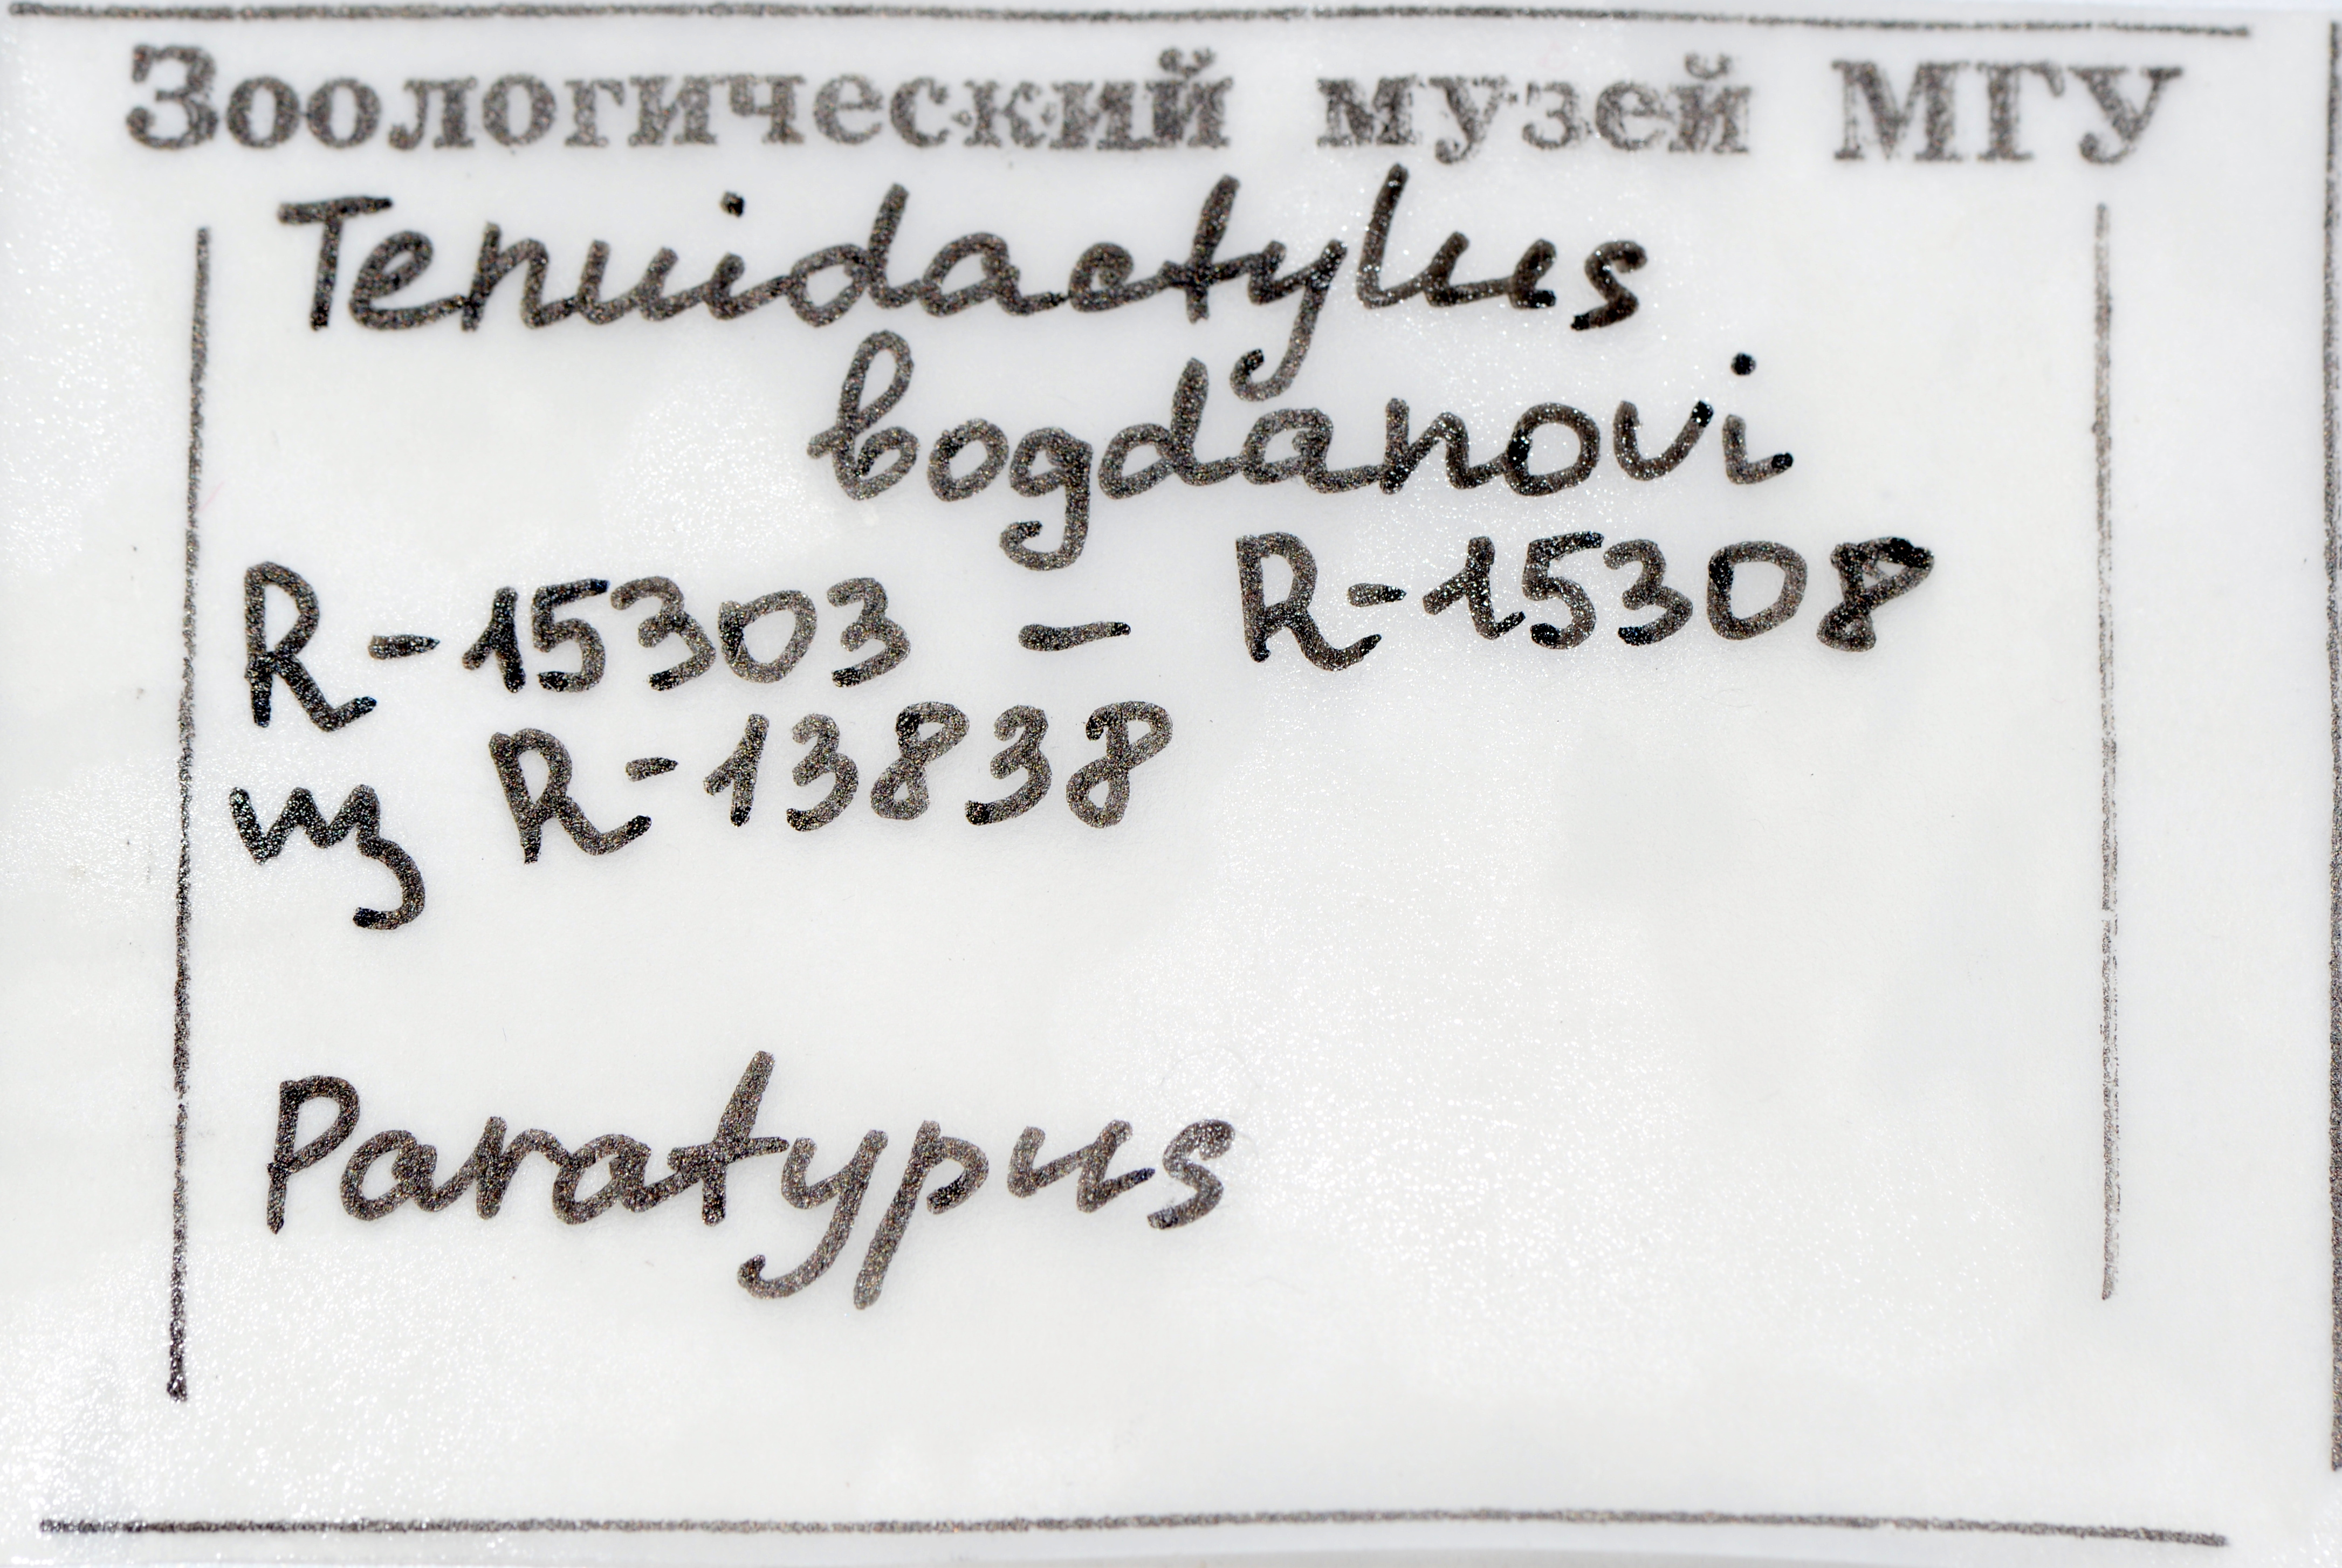 Зоологический музей МГУ
Tenuidactylus
bogdanovi
R-15303 – R-15308
из R-13838
Paratypus